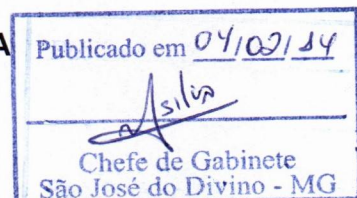 A
Publicado em 04/02/14
Asilva
Chefe de Gabinete
São José do Divino - MG